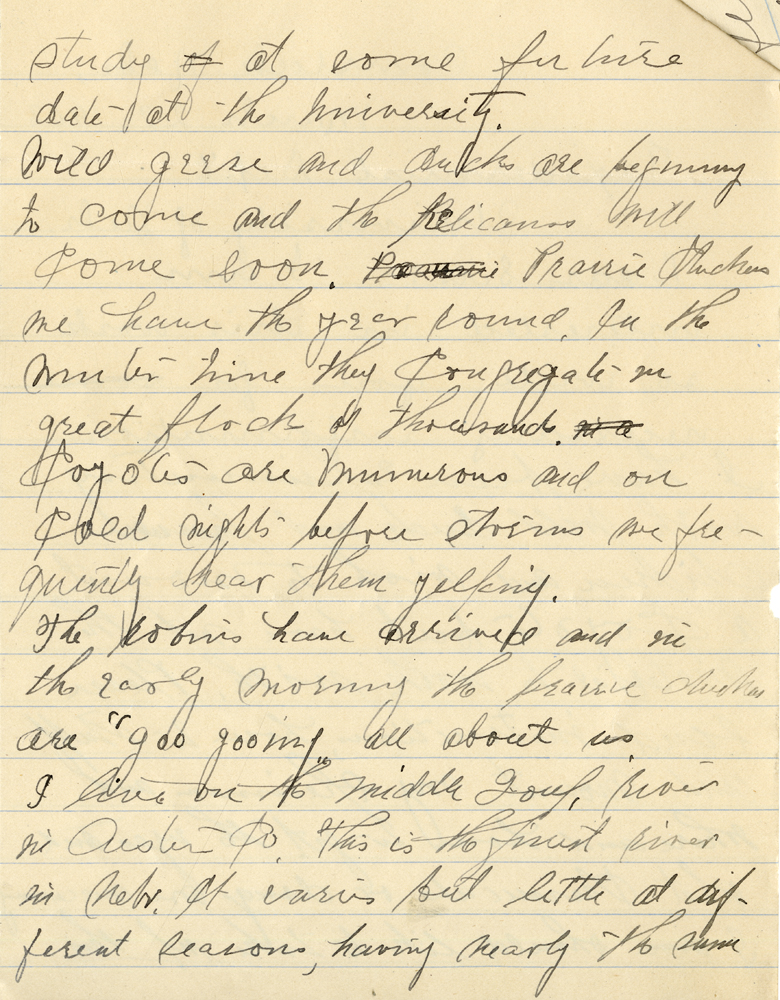 study of at some future
date at the University.
Wild geese and ducks are beginning
to come and the Pelicans will
Come soon. Prairie Chickens
we have the year round. In the
winter time they Congregate in
great flock of thousands. in a
Coyotes are numerous and on
Cold nights before storms we fre-
quently hear them yelping.
The robins have arrived and in
the early morning the prairie chickens
are "goo gooing" all about us
I live on the middle Loup, river
in Custer Co. This is the finest river
in Nebr. It varies but little at dif-
ferent seasons, having nearly the same